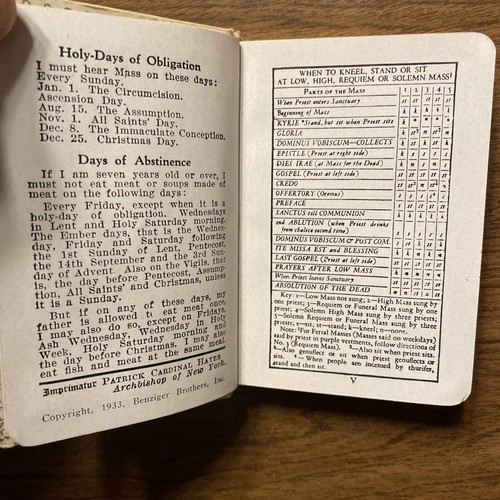 Holy-Days of Obligation
I must hear Mass on these days:
Every Sunday.
Jan. 1. The Circumcision.
Ascension Day.
Aug. 15. The Assumption.
Nov. 1. All Saints' Day.
Dec. 8. The Immaculate Conception.
Dec. 25. Christmas Day.
Days of Abstinence
If I am seven years old or over, I
must not eat meat or soups made of
meat on the following days:
Every Friday, except when it is a
holy-day of obligation, Wednesdays
in Lent and Holy Saturday morning.
The Ember days, that is the Wednes-
day, Friday and Saturday following
the 1st Sunday of Lent, Pentecost,
the 14th September and the 3rd Sun-
day of Advent. Also on the Vigils, that
is, the day before Pentecost, Assump-
tion, All Saints' and Christmas, unless
it is a Sunday.
But if on any of these days, my
father is allowed to eat meat once,
I may also do so, except on Fridays,
Ash Wednesday, Wednesday in Holy
Week, Holy Saturday morning and
the day before Christmas. I may also
eat fish and meat at the same meal.
Imprimatur PATRICK CARDINAL HAYES
Archbishop of New York.
Copyright, 1933, Benziger Brothers, Inc.
WHEN TO KNEEL, STAND OR SIT
AT LOW, HIGH, REQUIEM OR SOLEMN MASS
PARTS OF THE MASS 1 2 3 4 5
When Priest enters Sanctuary
Beginning of Mass
KYRIE *Stand, but sit when Priest sits
GLORIA
DOMINUS VOBISCUM—COLLECTS
EPISTLE (Priest at right side)
DIES IRAE (at Mass for the Dead)
GOSPEL (Priest at left side)
CREDO
OFFERTORY (Oremus)
PREFACE
SANCTUS till COMMUNION
and ABLUTION (when Priest drinks
from chalice second time)
DOMINUS VOBISCUM or POST COM.
ITE MISSA EST and BLESSING
LAST GOSPEL (Priest at left side)
PRAYERS AFTER LOW MASS
When Priest leaves Sanctuary
ABSOLUTION OF THE DEAD
Key: 1—Low Mass not sung; 2—High Mass sung by
one priest; 3—Requiem or Funeral Mass sung by one
priest; 4—Solemn High Mass sung by three priests;
5—Solemn Requiem or Funeral Mass sung by three
priests; s—sit; st—stand; k—kneel; g—genuflect.
Note: For Ferial Masses (Masses said on weekdays)
said by priest in purple vestments, follow directions of
No. 3 (Requiem Mass). Also sit when priest sits.
Also genuflect or sit when priest genuflects or
sits. When people are incensed by thurifer,
stand and then sit.
V